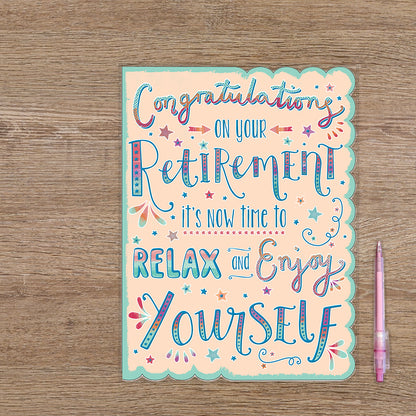 Congratulations
ON YOUR
RETIREMENT
it's NOW time to
RELAX and Enjoy
YOURSELF